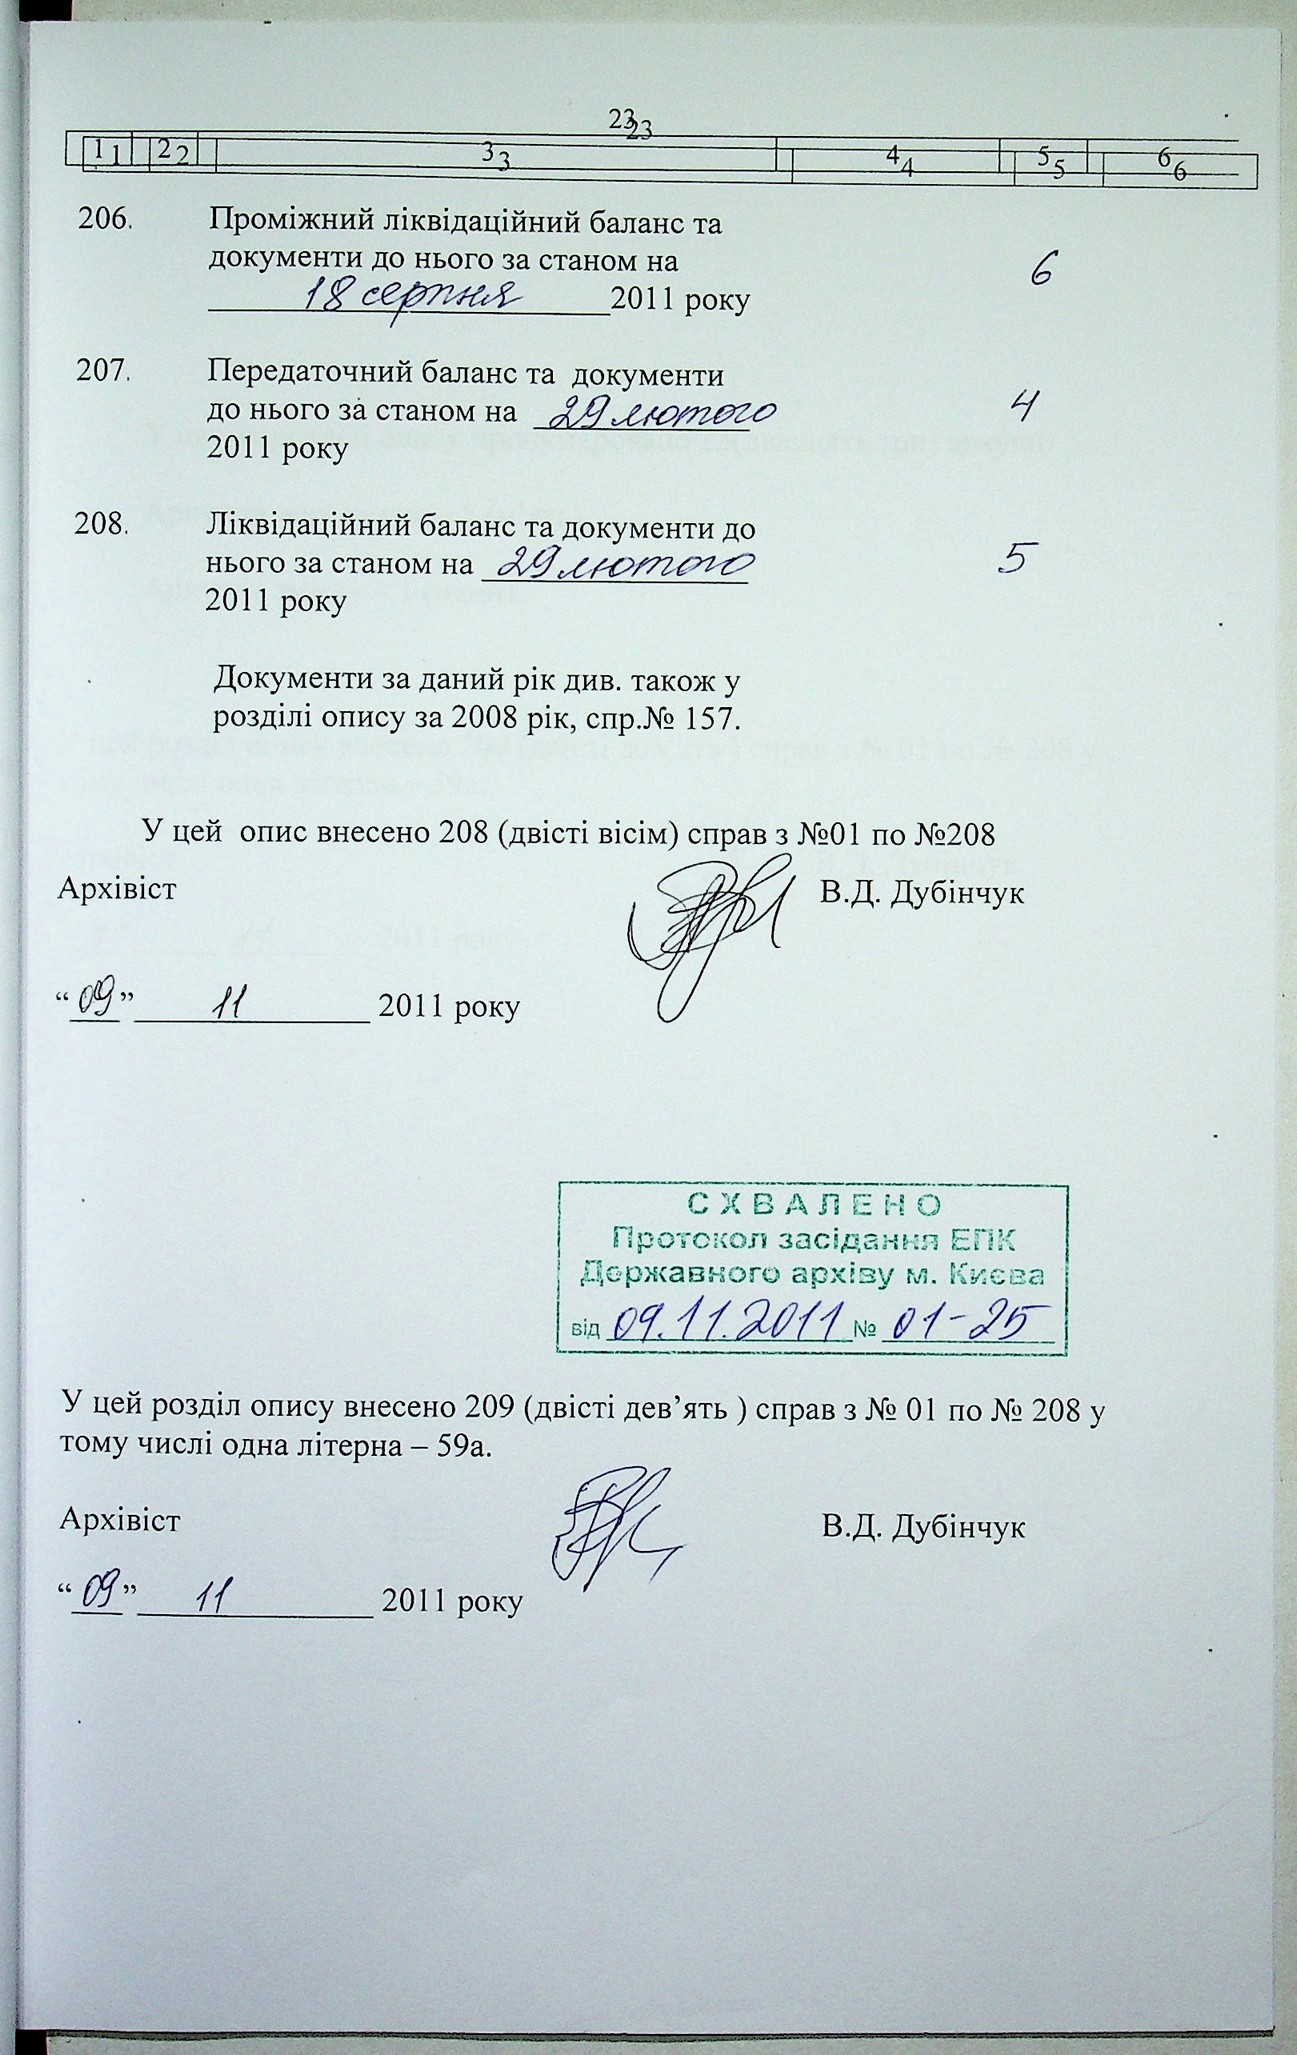 23 23
1 1 2 2 3 3 4 4 5 5 6 6
206. Проміжний ліквідаційний баланс та
документи до нього за станом на 6
18 серпня 2011 року
207. Передаточний баланс та документи
до нього за станом на 29 лютого 4
2011 року
208. Ліквідаційний баланс та документи до
нього за станом на 29 лютого 5
2011 року
Документи за даний рік див. також у
розділі опису за 2008 рік, спр.№ 157.
У цей опис внесено 208 (двісті вісім) справ з №01 по №208
Архівіст В.Д. Дубінчук
“09” 11 2011 року
СХВАЛЕНО
Протокол засідання ЕПК
Державного архіву м. Києва
від 09.11.2011 № 01-25
У цей розділ опису внесено 209 (двісті дев’ять ) справ з № 01 по № 208 у
тому числі одна літерна – 59а.
Архівіст В.Д. Дубінчук
“09” 11 2011 року